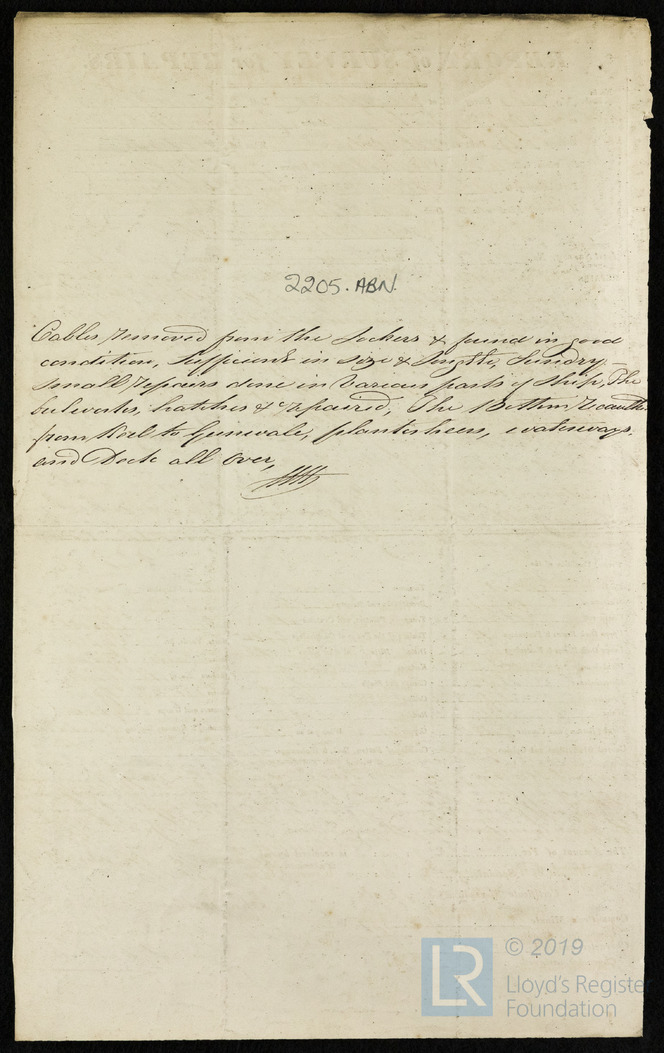 2205. ABN.
Cables removed from the Lockers & found in good
condition, sufficient in size & length, Sundry
small repairs done in various parts of Ship, The
bulwarks, hatches &c repaired, The Bottom Recaulk
from Keel to Gunwale, plantsheers, waterways
and Deck all over,
© 2019
LR
Lloyd's Register
Foundation